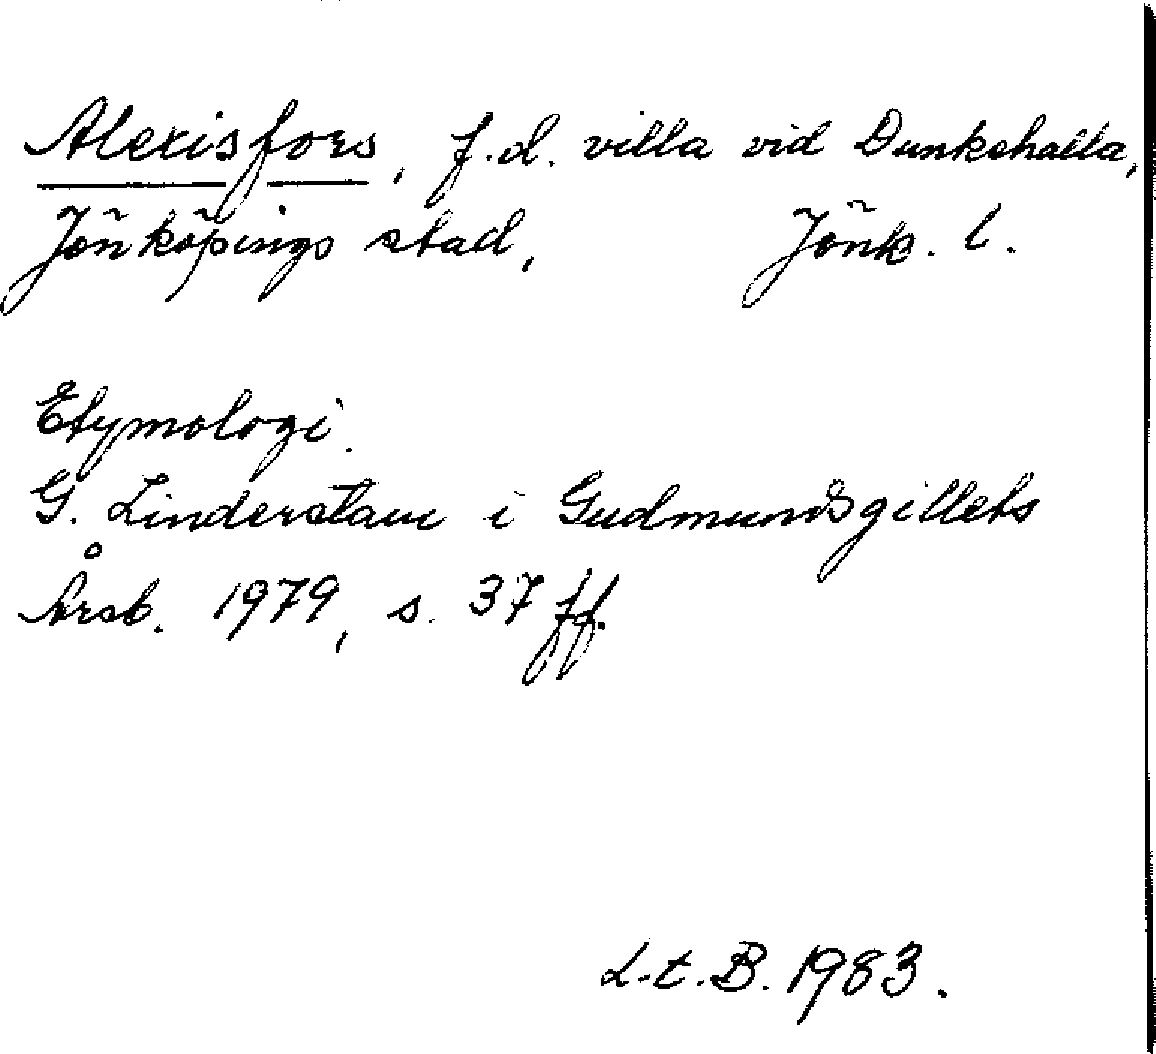 Alexisfors, f.d. villa vid Dunkehalla,
Jönköpings stad, Jönk. l.
Etymologi.
G. Linderstam i Gudmundsgillets
Årsb. 1979, s. 37 ff.
L.t.B. 1983.